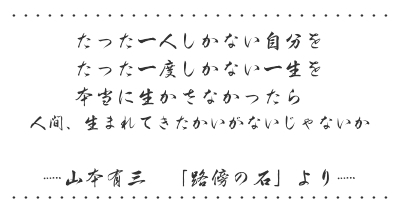 たった一人しかない自分を
たった一度しかない一生を
本当に生かさなかったら
人間、生まれてきたかいがないじゃないか
……山本有三　「路傍の石」より……